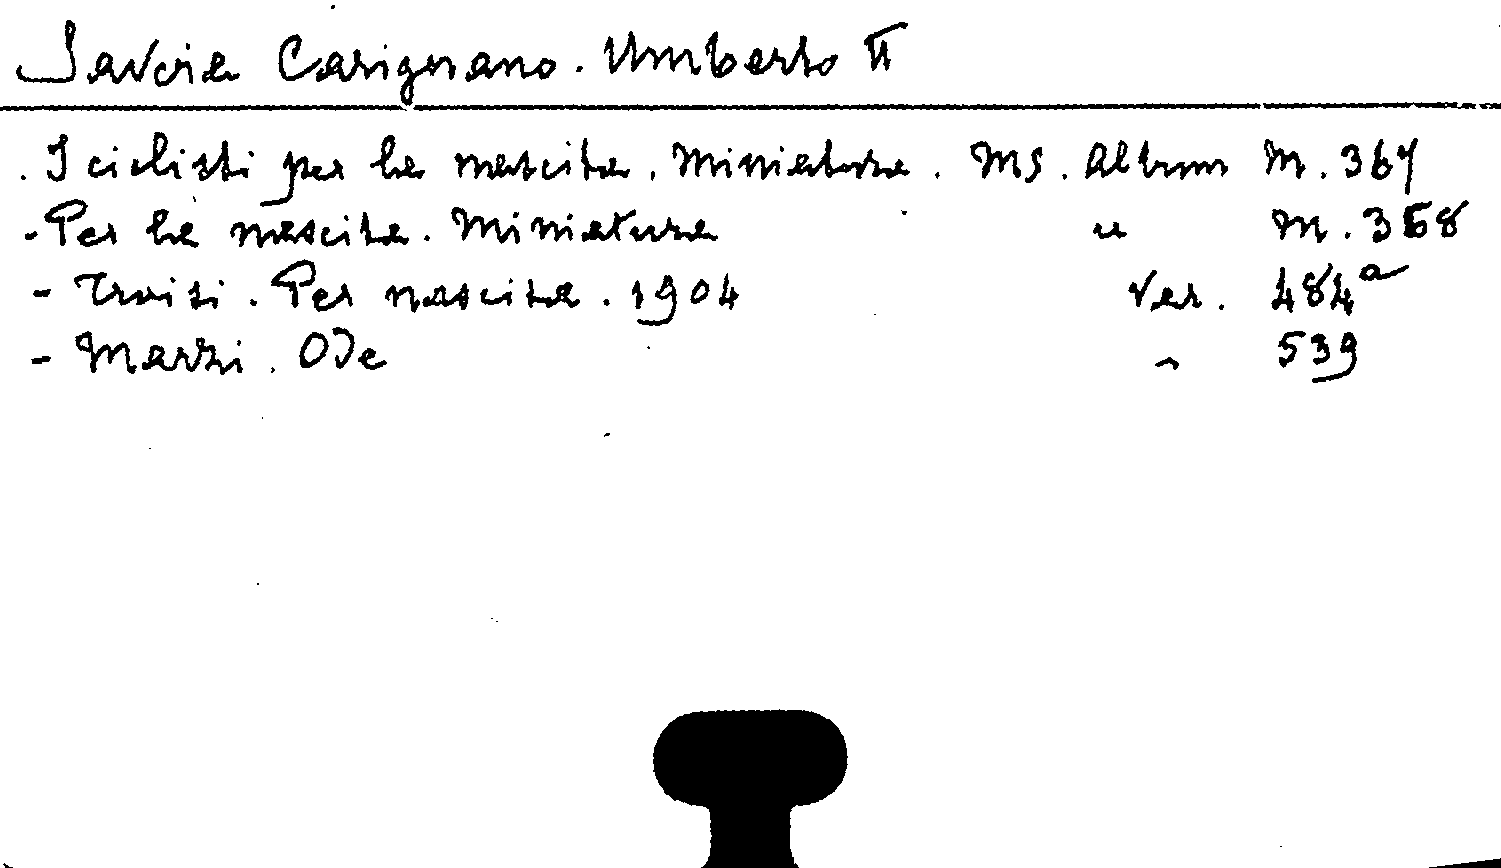 Savoia Carignano. Umberto II
. I ciclisti per la nascita. Miniatura. MS. Album M. 367
- Per la nascita. Miniatura " M. 368
- Troisi. Per nascita. 1904 Ver. 484a
- Marzi. Ode " 539